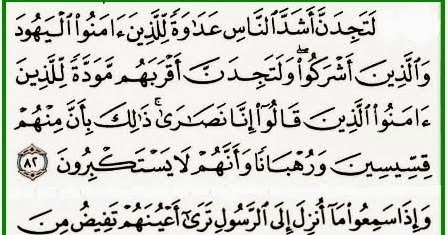 لَتَجِدَنَّ أَشَدَّ ٱلنَّاسِ عَدَٰوَةً لِّلَّذِينَ ءَامَنُوا۟ ٱلْيَهُودَ
وَٱلَّذِينَ أَشْرَكُوا۟ ۖ وَلَتَجِدَنَّ أَقْرَبَهُم مَّوَدَّةً لِّلَّذِينَ
ءَامَنُوا۟ ٱلَّذِينَ قَالُوٓا۟ إِنَّا نَصَٰرَىٰ ۚ ذَٰلِكَ بِأَنَّ مِنْهُمْ
قِسِّيسِينَ وَرُهْبَانًا وَأَنَّهُمْ لَا يَسْتَكْبِرُونَ ٨٢
وَإِذَا سَمِعُوا۟ مَآ أُنزِلَ إِلَى ٱلرَّسُولِ تَرَىٰٓ أَعْيُنَهُمْ تَفِيضُ مِنَ